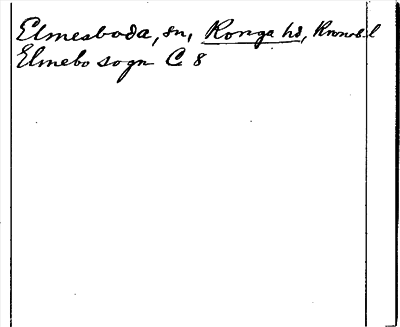 Elmesboda, sn, Konga hd, Kronob. l
Elmebo sogn C 8